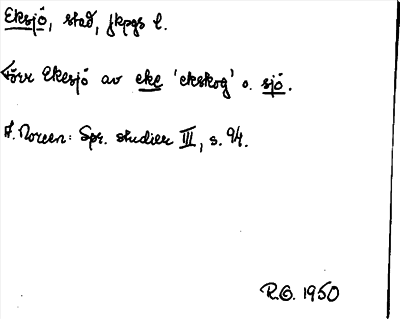 Eksjö, stad, Jkpgs l.
Förr Ekesjö av eke 'ekskog' o. sjö.
A. Noreen: Spr. studier III, s. 94.
R.G. 1950